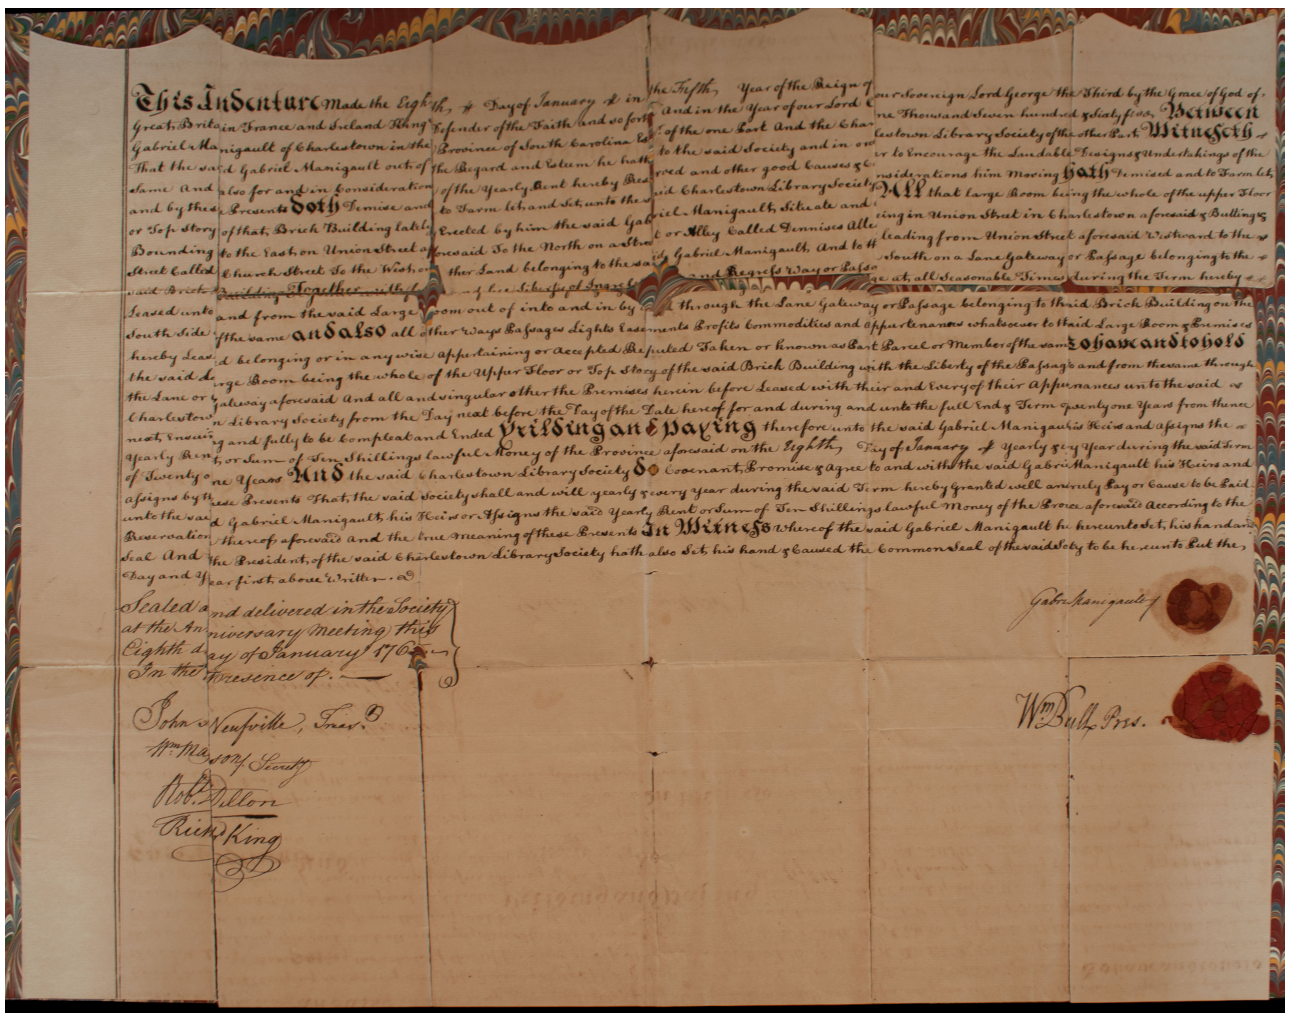 This Indenture Made the Eighth Day of January in the Fifth Year of the Reign of our Sovereign Lord George the Third by the Grace of God of
Great Britain France and Ireland King Defender of the Faith and so forth And in the Year of our Lord One Thousand Seven hundred & Sixty five, Between
Gabriel Manigault of Charlestown in the Province of South Carolina of the one Part And the Charlestown Library Society of the other Part Witnesseth
That the said Gabriel Manigault out of the Regard and Esteem he hath to the said Society and in order to Encourage the Laudable Designs & Undertakings of the
same And also for and in Consideration of the Yearly Rent hereby and other good Causes & Considerations him Moving hath Demised and to Farm let,
and by these Presents doth Demise and to Farm let, and Set, unto the said Charlestown Library Society All that large Room being the whole of the upper Floor
or Top Story of that, Brick Building lately Erected by him the said Gabriel Manigault, Situate and in Union Street in Charlestown aforesaid & Butting &
Bounding to the East on Union Street aforesaid To the North on a Street or Alley Called Dennises Alley leading from Union Street aforesaid Westward to the
Street Called Church Street To the West on other Land belonging to the said Gabriel Manigault, And to the South on a Lane Gateway or Passage belonging to the
said Brick Building Together with and Regress Way or Passage at all Seasonable Times during the Term hereby
Leased unto and from the said Large Room out of into and in by through the Lane Gateway or Passage belonging to the said Brick Building on the
South Side and also all other Ways Passages Lights Easements Profits Commodities and Appurtenances whatsoever to the said Large Room & Premises
hereby Leased belonging or in any wise Appertaining or Accepted Reputed Taken or Known as Part Parcel or Member of the same To have and to hold
the said Large Room being the whole of the Upper Floor or Top Story of the said Brick Building with the Liberty of the Passage and from the same through
the Lane or Gateway aforesaid And all and singular other the Premises herein before Leased with their and Every of their Appurtenances unto the said
Charlestown Library Society from the Day next before the Day of the Date hereof for and during and unto the full End & Term of Twenty one Years from thence
next, Ensuing and fully to be Compleat and Ended Yeilding and Paying therefore unto the said Gabriel Manigault his Heirs and Assigns the
Yearly Rent, or Sum of Ten Shillings lawful Money of the Province aforesaid on the Eighth Day of January Yearly & every Year during the said Term
of Twenty one Years And the said Charlestown Library Society do Covenant, Promise & Agree to and with the said Gabriel Manigault his Heirs and
Assigns by these Presents That, the said Society shall and will yearly & every Year during the said Term hereby Granted well and truly Pay or Cause to be Paid
unto the said Gabriel Manigault, his Heirs or Assigns the said Yearly Rent or Sum of Ten Shillings lawful Money of the Province aforesaid According to the
Reservation thereof aforesaid And the true Meaning of these Presents In Witness Whereof the said Gabriel Manigault he hereunto Set, his hand and
Seal And the President, of the said Charlestown Library Society hath also Set, his hand & Caused the Common Seal of the said Society to be hereunto Put the,
Day and Year first above Written.
Sealed and delivered in the Society
at the Anniversary Meeting this
Eighth day of January 1765
In the Presence of.
Gabrl Manigault
John Neufville, Treas.r
Wm Bull Pres.
Wm Mason Secrety
Robt. Dillon
Richd King